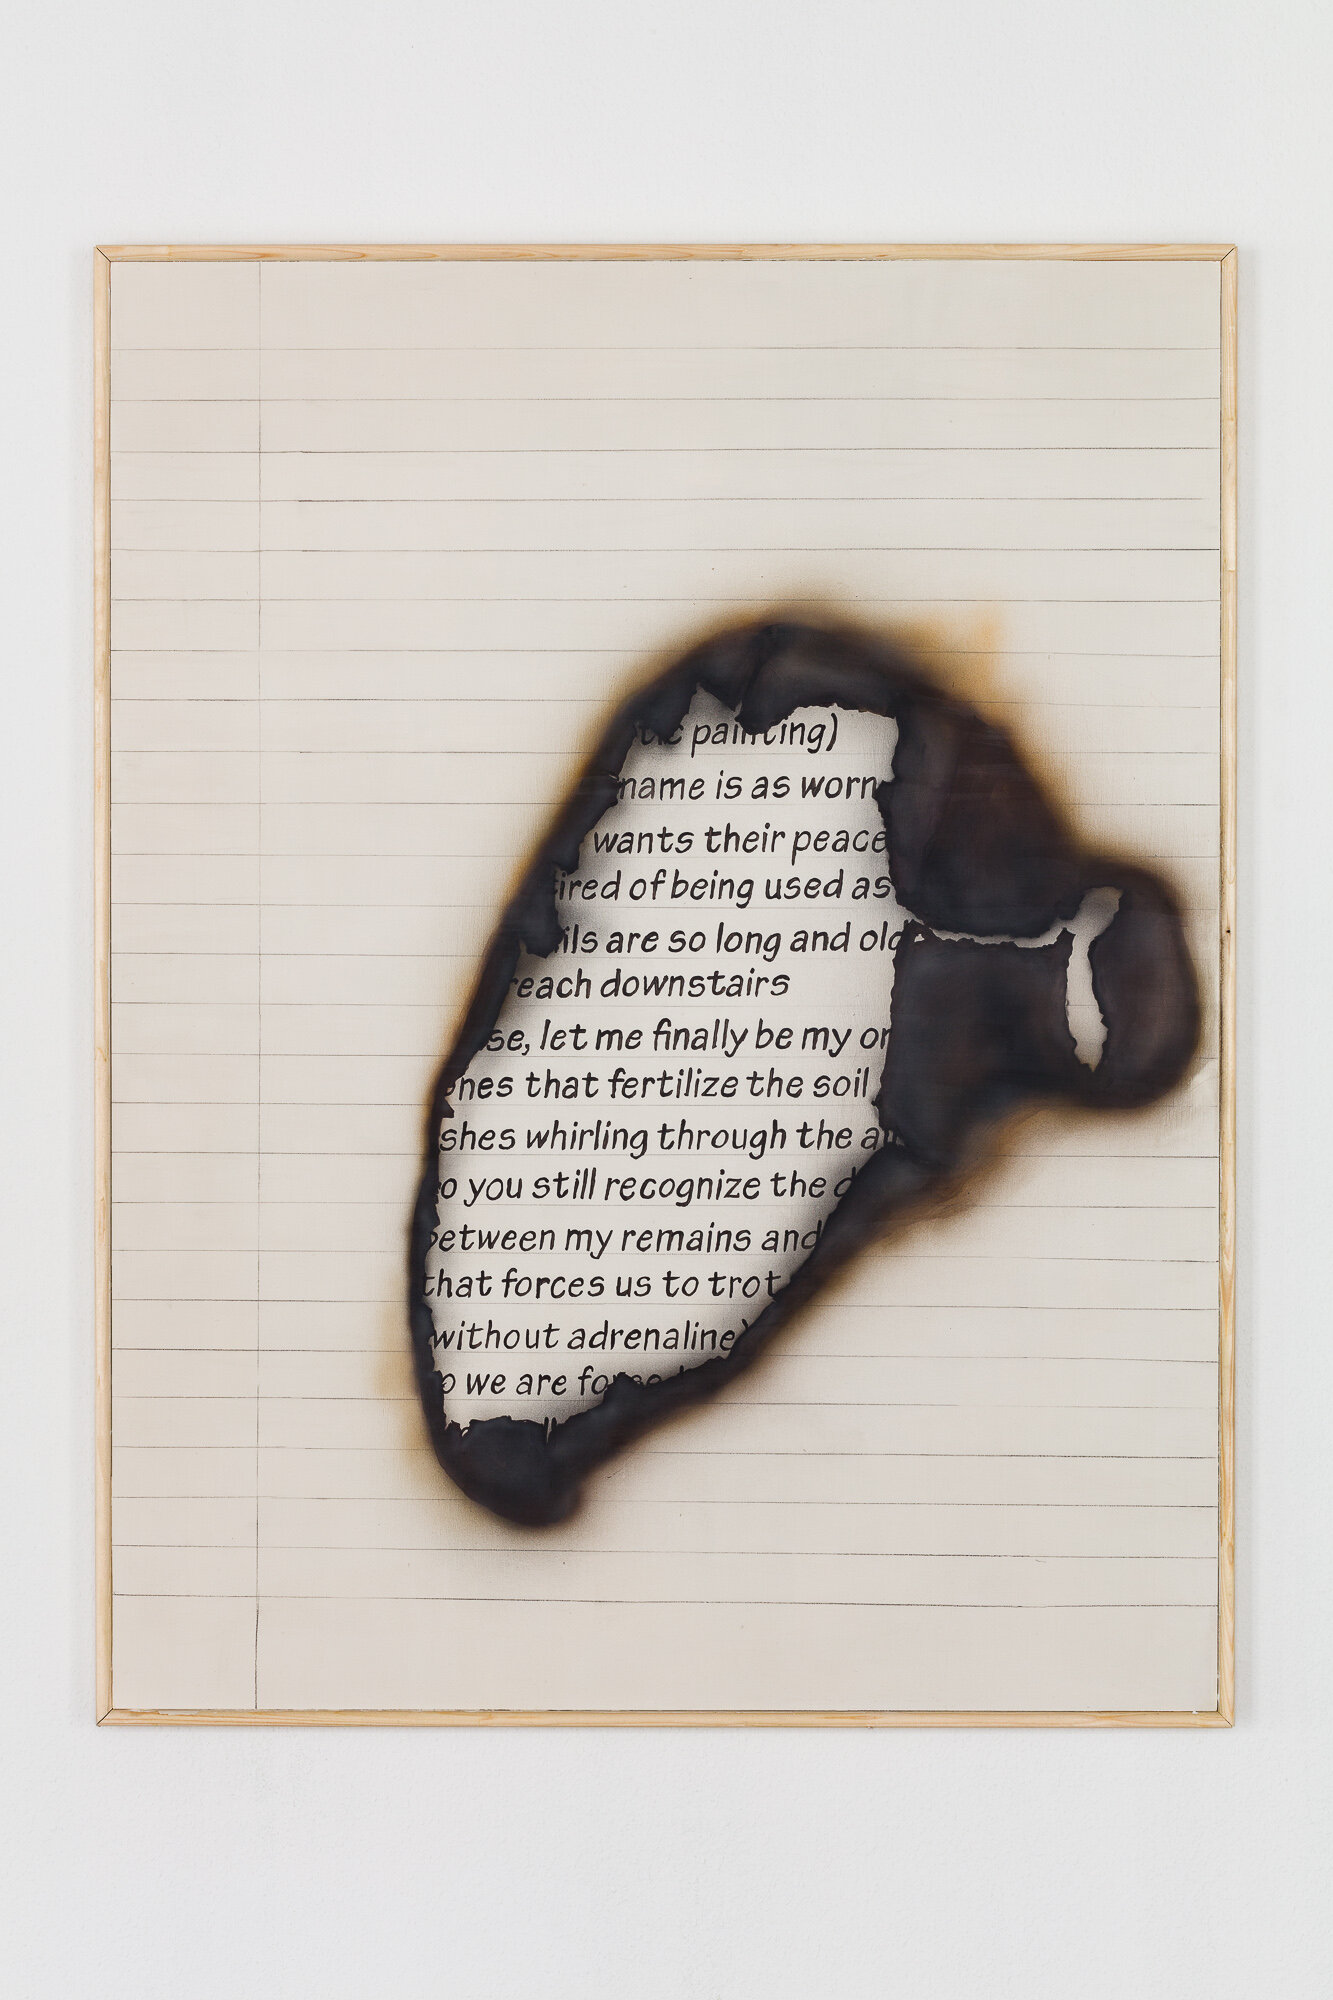 tic painting)
name is as worn
wants their peace
ired of being used as
ils are so long and old
reach downstairs
se, let me finally be my or
ones that fertilize the soil
shes whirling through the a
o you still recognize the d
between my remains and
that forces us to trot
without adrenaline)
o we are forced